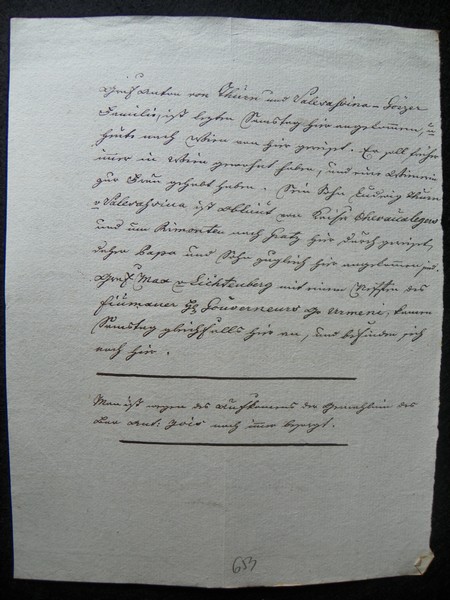 Graf Anton von Thurn und Valesassina - Görzer
Familie, ist letzten Samstag hier angekommen, u
heute nach Wien von hier gereist. Er soll früher
immer in Wien gewohnt haben, und eine Wienerin
zur Frau gehabt haben. Sein Sohn Ludwig Thurn
v Valesassina ist von Kaiser Chevauxlegers
und um Remonten nach Gratz hier durch gereiset,
daher Papa und Sohn zugleich hier angekommen sind.
Graf Max v Lichtenberg mit einem Neffen des
Fiumaner H Gouverneurs v Urmeny, kamen
Samstag gleichfalls hier an, und befinden sich
noch hier.
Man ist wegen des Aufkommens der Gemahlin des
Bar Ant: Zois noch immer besorgt.
653